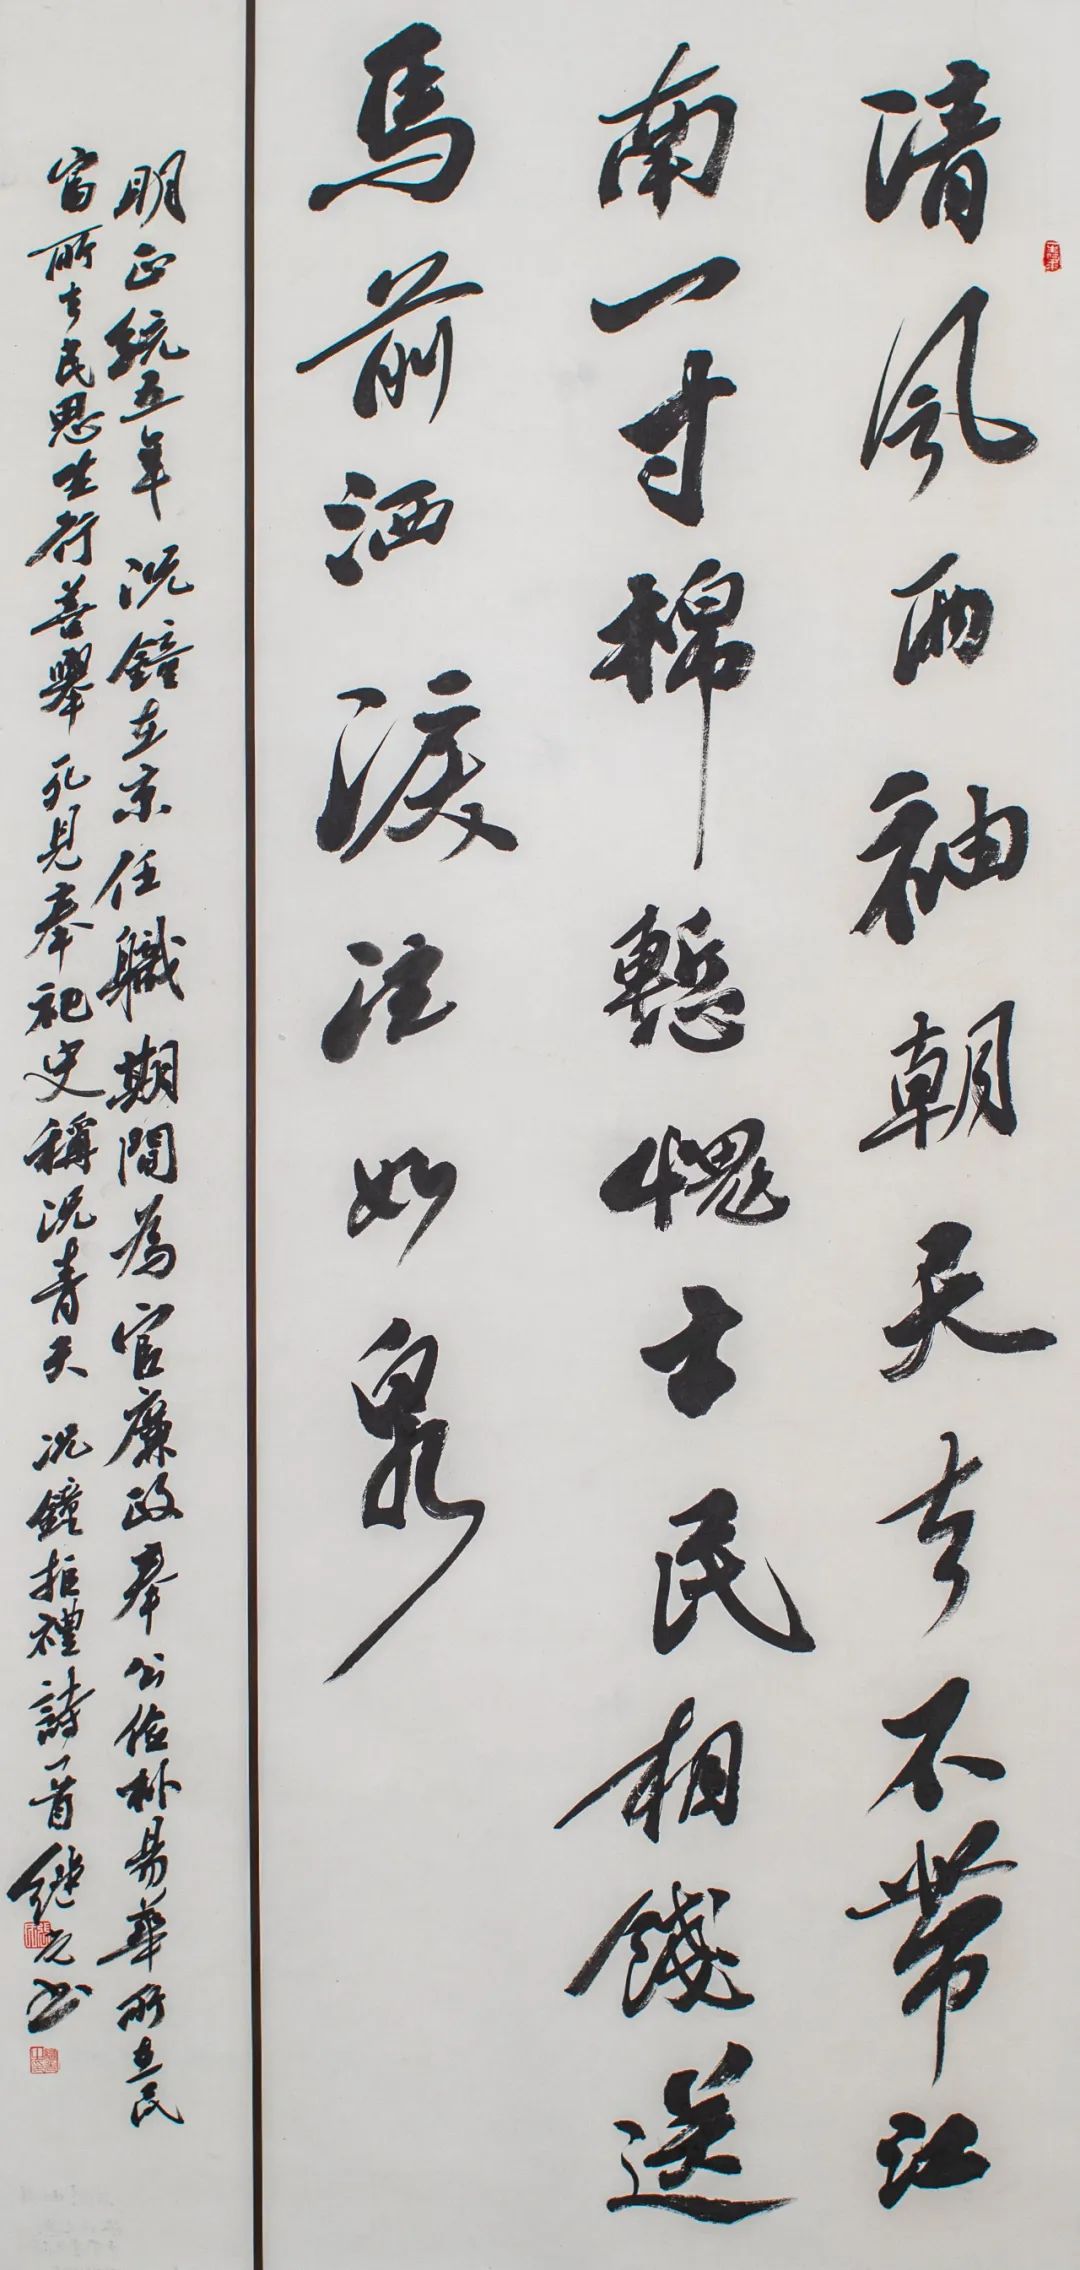 清風兩袖朝天去不帶江
南一寸棉慙愧士民相餞送
馬前洒淚注如泉
明正統五年況鐘在京任職期間為官廉政奉公俭朴易華所在民
富所去民思生行善舉死見奉祀史稱況青天況鐘拒禮詩一首继元书